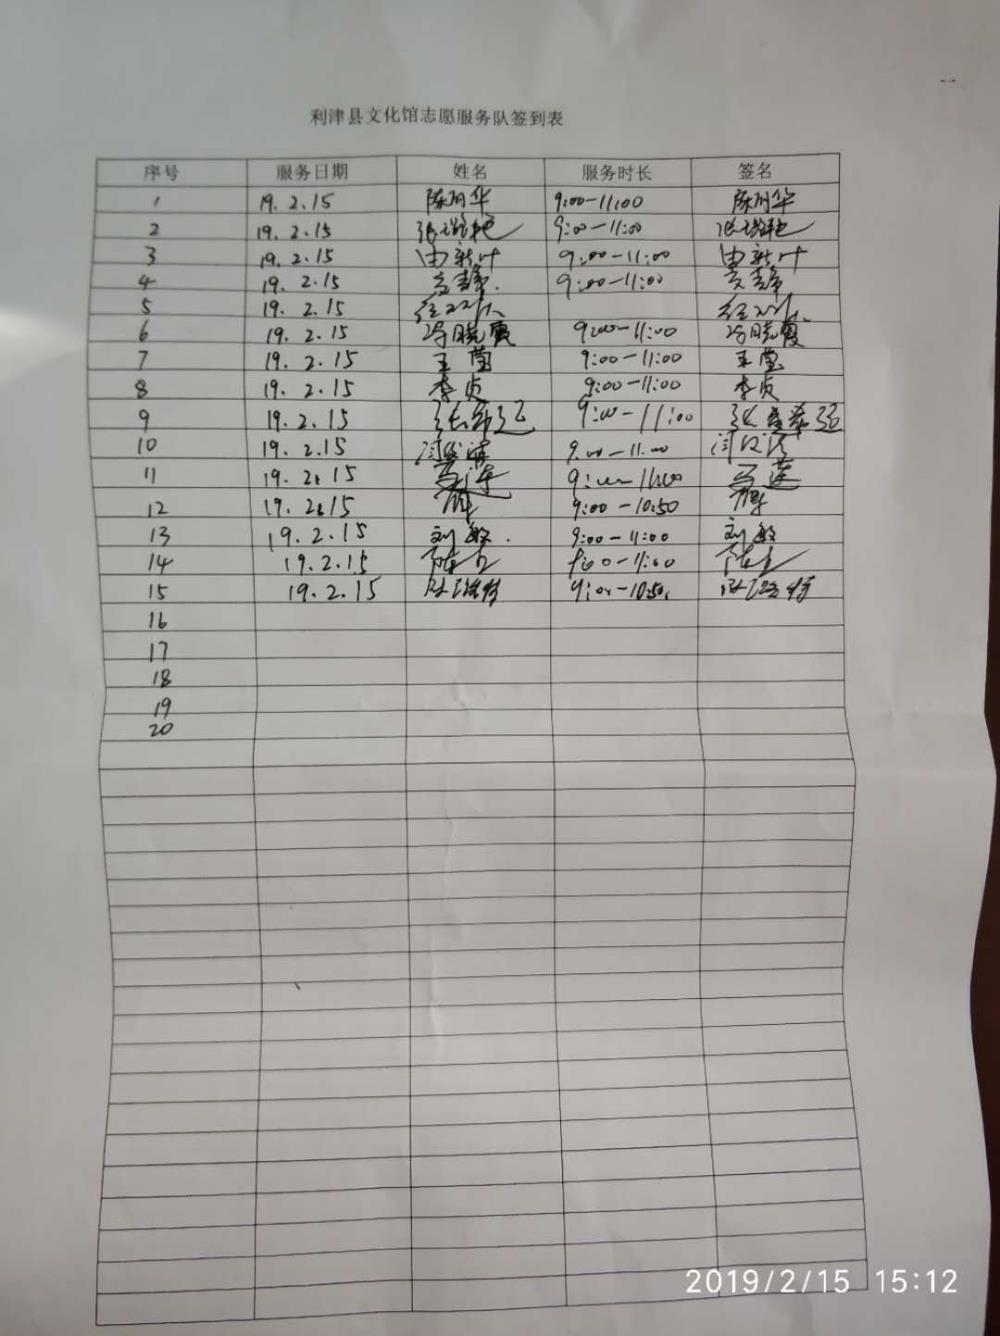 利津县文化馆志愿服务队签到表
序号 服务日期 姓名 服务时长 签名
1 19.2.15 陈丽华 9:00-11:00 陈丽华
2 19.2.15 9:00-11:00
3 19.2.15 由新叶 9:00-11:00 由新叶
4 19.2.15 9:00-11:00
5 19.2.15
6 19.2.15 冯晓霞 9:00-11:00 冯晓霞
7 19.2.15 王莹 9:00-11:00 王莹
8 19.2.15 李贞 9:00-11:00 李贞
9 19.2.15 9:00-11:00
10 19.2.15 9:00-11:00
11 19.2.15 9:00-11:00
12 19.2.15 9:00-10:50
13 19.2.15 刘敏 9:00-11:00 刘敏
14 19.2.15 11:00
15 19.2.15 9:00-10:50
16
17
18
19
20
2019/2/15 15:12